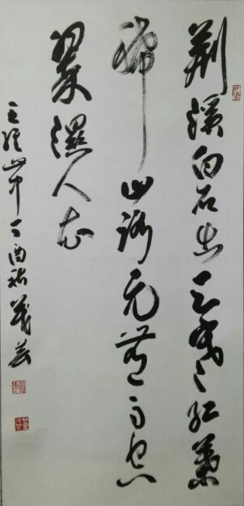 荆溪白石出天寒红葉
稀山路元無雨空
翠濕人衣
王維山中丁酉